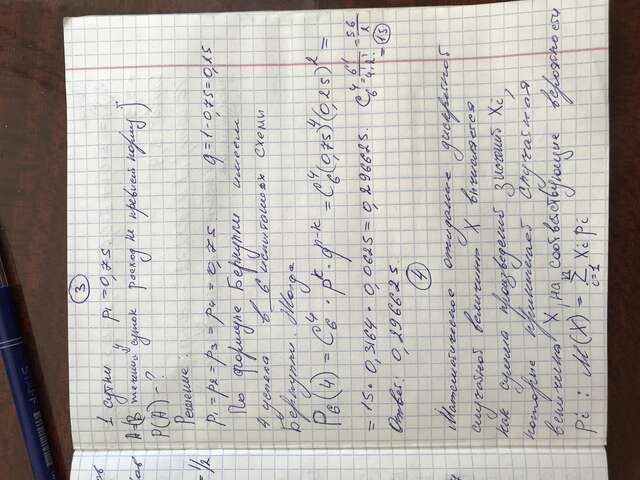 ③
1 сутки p₁ = 0,75.
A = {в течение 4 суток расход не превысит норму}
P(A) - ?
Решение:
p₁ = p₂ = p₃ = p₄ = 0,75 q = 1 - 0,75 = 0,25
По формуле Бернулли имеем
4 успеха в 6 испытаниях схемы
Бернулли. Тогда
P₆(4) = C₆⁴ · pᵏ · qⁿ⁻ᵏ = C₆⁴ (0,75)⁴ (0,25)² =
C₆⁴ = 6!/4!·2! = 5·6/2 = ⑮
= 15 · 0,3164 · 0,0625 = 0,296625.
Ответ: 0,296625.
④
Математическое ожидание дискретной
случайной величины X вычисляется
как сумма произведений значений xᵢ,
которые принимает случайная
величина X, на соответствующие вероятности
pᵢ: M(X) = Σ xᵢ pᵢ
n
i=1
= 1/2